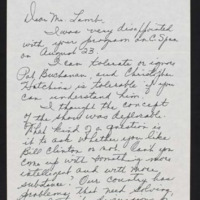 Dear Mr. Lamb,
I was very disappointed
with your program on C-Span
on August 23.
I can tolerate, or ignore
Pat Buchanan, and Christopher
Hutchins is tolerable if you
can understand him.
I thought the concept
of the show was deplorable.
That kind of a question is
it to ask whether you like
Bill Clinton or not. Can't you
come up with something more
intelligent and with more
substance? Our country has
problems that need solving,